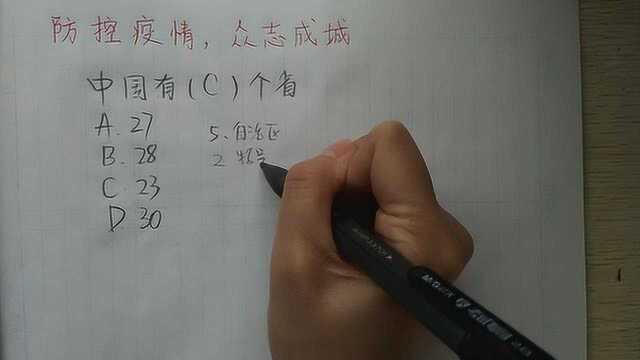 防控疫情，众志成城
中国有(C)个省
A. 27
5.自治区
B. 28
2 特
C 23
D 30
M&G